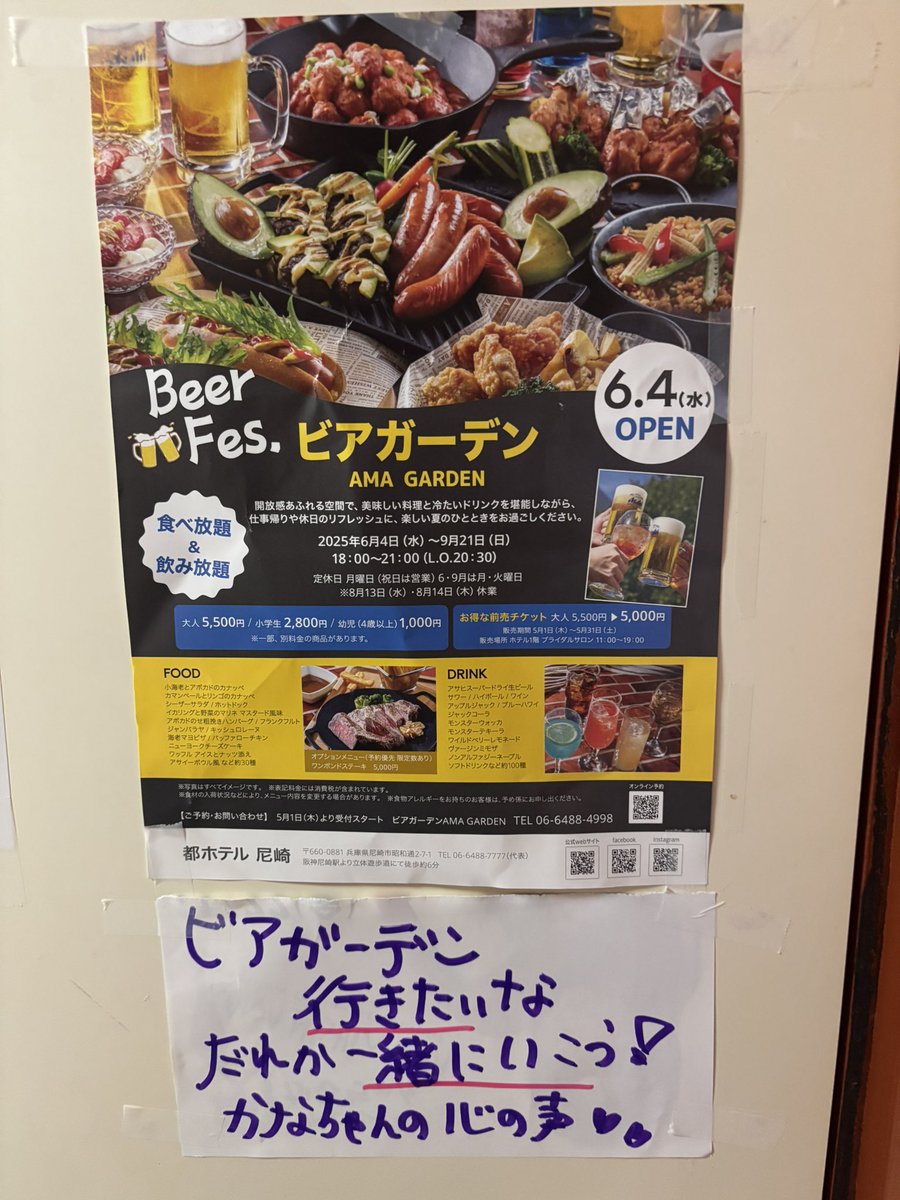 Beer
Fes.
ビアガーデン
AMA GARDEN
6.4(水)
OPEN
食べ放題
&
飲み放題
開放感あふれる空間で、美味しい料理と冷たいドリンクを堪能しながら、
仕事帰りや休日のリフレッシュに、楽しい夏のひとときをお過ごしください。
2025年6月4日(水)~9月21日(日)
18:00~21:00(L.O.20:30)
定休日 月曜日(祝日は営業) 6・9月は月・火曜日
※8月13日(水)・8月14日(木)休業
大人 5,500円 / 小学生 2,800円 / 幼児(4歳以上) 1,000円
※一部、別料金の商品があります。
お得な前売チケット 大人 5,500円 ▶ 5,000円
販売期間 5月1日(木)~5月31日(土)
販売場所 ホテル1階 ブライダルサロン 11:00~19:00
FOOD
小海老とアボカドのカナッペ
カマンベールとリンゴのカナッペ
シーザーサラダ / ホットドック
イカリングと野菜のマリネ マスタード風味
アボカドのせ粗挽きハンバーグ / フランクフルト
ジャンバラヤ / キッシュロレーヌ
海老マヨピザ / バッファローチキン
ニューヨークチーズケーキ
ワッフル アイスとナッツ添え
アサイーボウル風 など約30種
オプションメニュー(予約優先 限定数あり)
ワンポンドステーキ 5,000円
DRINK
アサヒスーパードライ生ビール
サワー / ハイボール / ワイン
アップルジャック / ブルーハワイ
ジャックコーラ
モンスターウォッカ
モンスターテキーラ
ワイルドベリーレモネード
ヴァージンミモザ
ノンアルファジーネーブル
ソフトドリンクなど約100種
※写真はすべてイメージです。 ※表記料金には消費税が含まれています。
※食材の入荷状況などにより、メニュー内容を変更する場合があります。 ※食物アレルギーをお持ちのお客様は、予め係にお申し出ください。
オンライン予約
【ご予約・お問い合わせ】 5月1日(木)より受付スタート ビアガーデンAMA GARDEN TEL 06-6488-4998
都ホテル 尼崎
〒660-0881 兵庫県尼崎市昭和通2-7-1 TEL 06-6488-7777(代表)
阪神尼崎駅より立体遊歩道にて徒歩約6分
公式webサイト
facebook
Instagram
ビアガーデン
行きたいな
だれか一緒にいこう!
かなちゃんの心の声♥♥